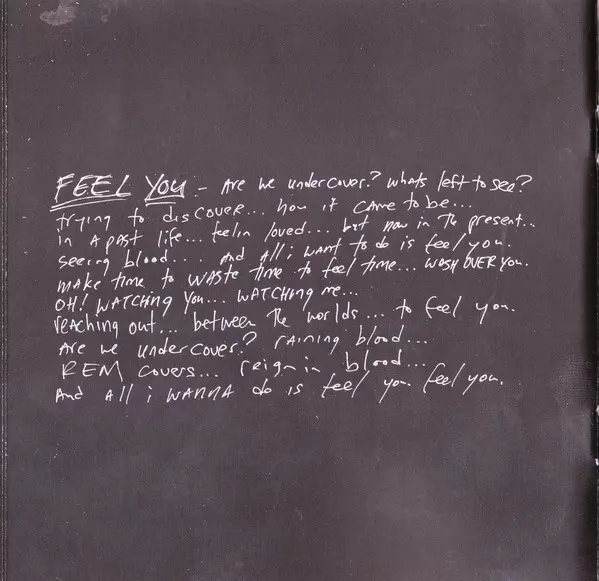 FEEL YOU - Are we undercover? whats left to see?
trying to discover... how it came to be...
in a past life... feelin loved... but now in the present..
seeing blood... and all i want to do is feel you.
make time to waste time to feel time... wash over you.
OH! WATCHING You... WATCHing me...
reaching out... between The worlds... to feel you.
Are we undercover? raining blood...
REM covers... reign in blood...
And All i WANNA do is feel you feel you.